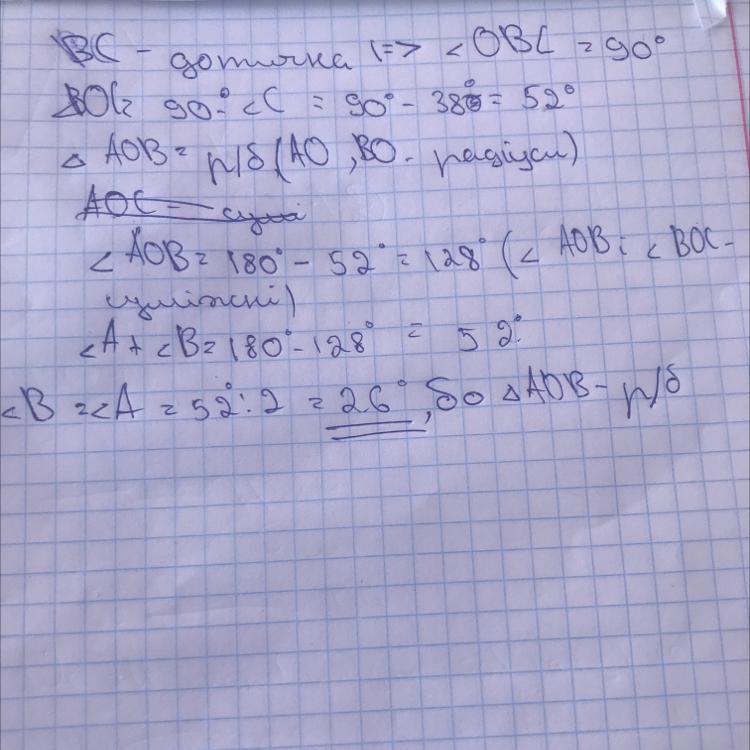 BC - дотична |=> <OBC = 90°
BOC = 90° - <C = 90° - 38° = 52°
△ AOB = р/б (AO, BO - радіуси)
AOC - сумі
< AOB = 180° - 52° = 128° (< AOB і < BOC -
суміжні)
<A + <B = 180° - 128° = 52°
<B = <A = 52° : 2 = 26°, бо △AOB - р/б